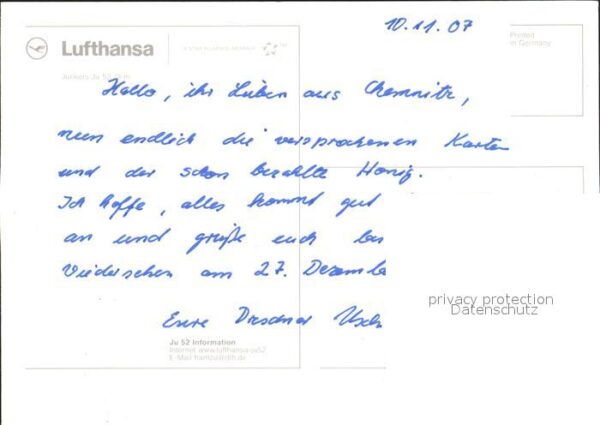 10.11.07
Lufthansa
A STAR ALLIANCE MEMBER
Printed
in Germany
Junkers Ju 52/3 m
Hallo, ihr Lieben aus Chemnitz,
nun endlich die versprochenen Karten
und der schon bezahlte Honig.
Ich hoffe, alles kommt gut
an und grüße euch
Wiedersehen am 27. Dezembe
Eure Dresdner Usch
privacy protection
Datenschutz
Ju 52 Information
Internet www.lufthansa-ju52